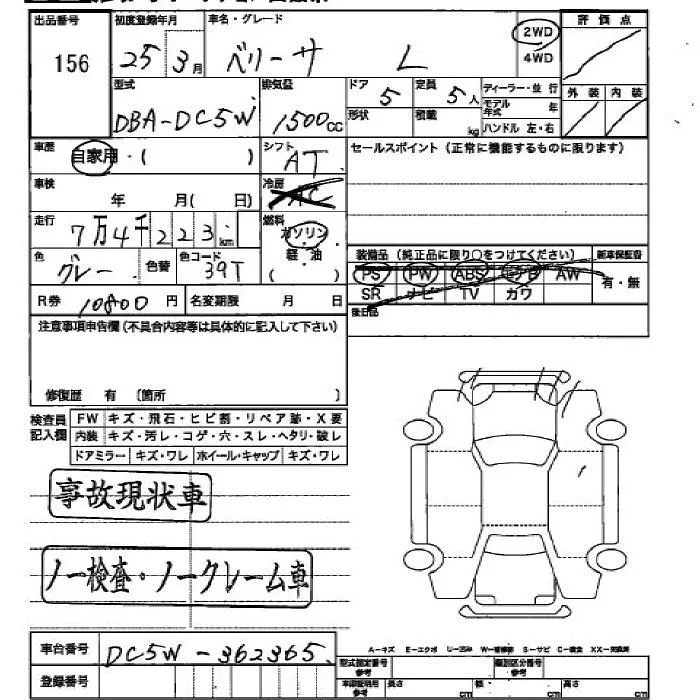 出品番号 初度登録年月 車名・グレード 評価点
156 25年 3月 ベリーサ L 2WD
4WD
型式 排気量 ドア 定員 ディーラー・並行 外装 内装
DBA-DC5W 1500cc 5 5人 モデル年式 年
形状 積載 kg ハンドル 左・右
車歴 自家用・( ) シフト AT セールスポイント (正常に機能するものに限ります)
車検 年 月( 日) 冷房 AC
走行 7万4千223km 燃料 ガソリン
軽・油
( )
色 グレー 色替 色コード 39T 装備品 (純正品に限り○をつけてください) 新車保証書
PS PW ABS AW 有・無
R券 10800円 名変期限 月 日 SR ナビ TV カワ
後日品
注意事項申告欄 (不具合内容等は具体的に記入して下さい)
修復歴 有 [箇所 ]
検査員 FW キズ・飛石・ヒビ割・リペア跡・X要
記入欄 内装 キズ・汚レ・コゲ・穴・スレ・ヘタリ・破レ
ドアミラー キズ・ワレ ホイール・キャップ キズ・ワレ
事故現状車
ノー検査・ノークレーム車
車台番号 DC5W-362365
A-キズ E-エクボ S-サビ
登録番号 型式指定番号 参考 類別区分番号 参考
長さ cm 幅 cm 高さ cm